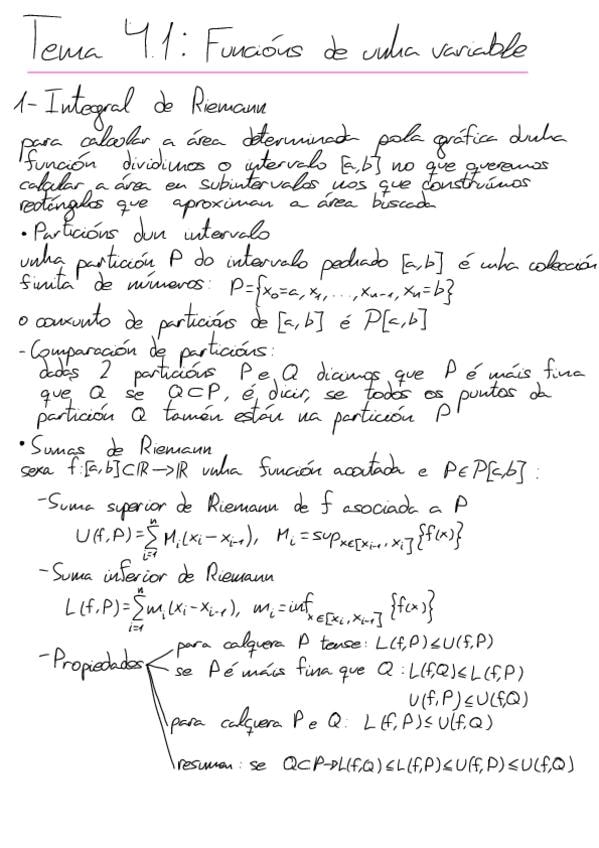 Tema 4.1: Funcións de unha variable
1- Integral de Riemann
para calcular a área determinada pola gráfica dunha
función dividimos o intervalo [a,b] no que queremos
calcular a área en subintervalos nos que construímos
rectángulos que aproximan a área buscada
• Particións dun intervalo
unha partición P do intervalo pechado [a,b] é unha colección
finita de números: P={x₀=a, x₁, ..., xₙ₋₁, xₙ=b}
o conxunto de particións de [a,b] é P[a,b]
- Comparación de particións:
dadas 2 particións P e Q dicimos que P é máis fina
que Q se Q⊂P, é dicir, se todos os puntos da
partición Q tamén están na partición P
• Sumas de Riemann
sexa f:[a,b]⊂ℝ→ℝ unha función acotada e P∈P[a,b]:
- Suma superior de Riemann de f asociada a P
U(f,P)=∑ⁿᵢ₌₁ Mᵢ(xᵢ-xᵢ₋₁), Mᵢ=sup x∈[xᵢ₋₁, xᵢ] {f(x)}
- Suma inferior de Riemann
L(f,P)=∑ⁿᵢ₌₁ mᵢ(xᵢ-xᵢ₋₁), mᵢ=inf x∈[xᵢ, xᵢ₊₁] {f(x)}
- Propiedades
para calquera P tense: L(f,P)≤U(f,P)
se P é máis fina que Q: L(f,Q)≤L(f,P)
U(f,P)≤U(f,Q)
para calquera P e Q: L(f,P)≤U(f,Q)
resumen: se Q⊂P→L(f,Q)≤L(f,P)≤U(f,P)≤U(f,Q)